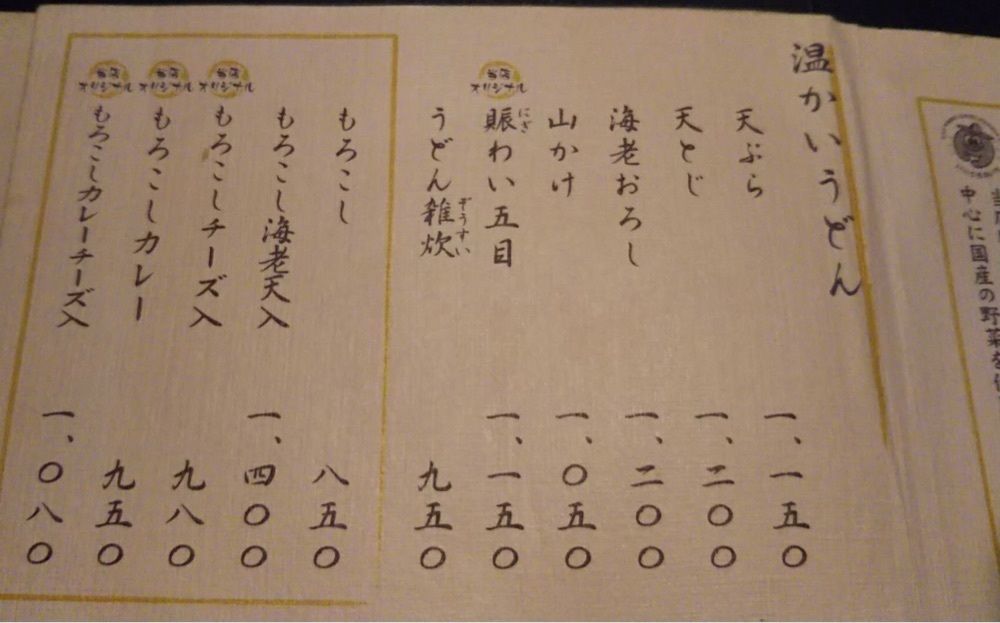 温かいうどん
天ぷら 一、一五〇
天とじ 一、二〇〇
海老おろし 一、二〇〇
山かけ 一、〇五〇
当店オリジナル
賑わい五目 一、一五〇
にぎ
うどん雑炊 九五〇
ぞうすい
もろこし 八五〇
もろこし海老天入 一、四〇〇
当店オリジナル
もろこしチーズ入 九八〇
当店オリジナル
もろこしカレー 九五〇
当店オリジナル
もろこしカレーチーズ入 一、〇八〇
中心に国産の野菜を